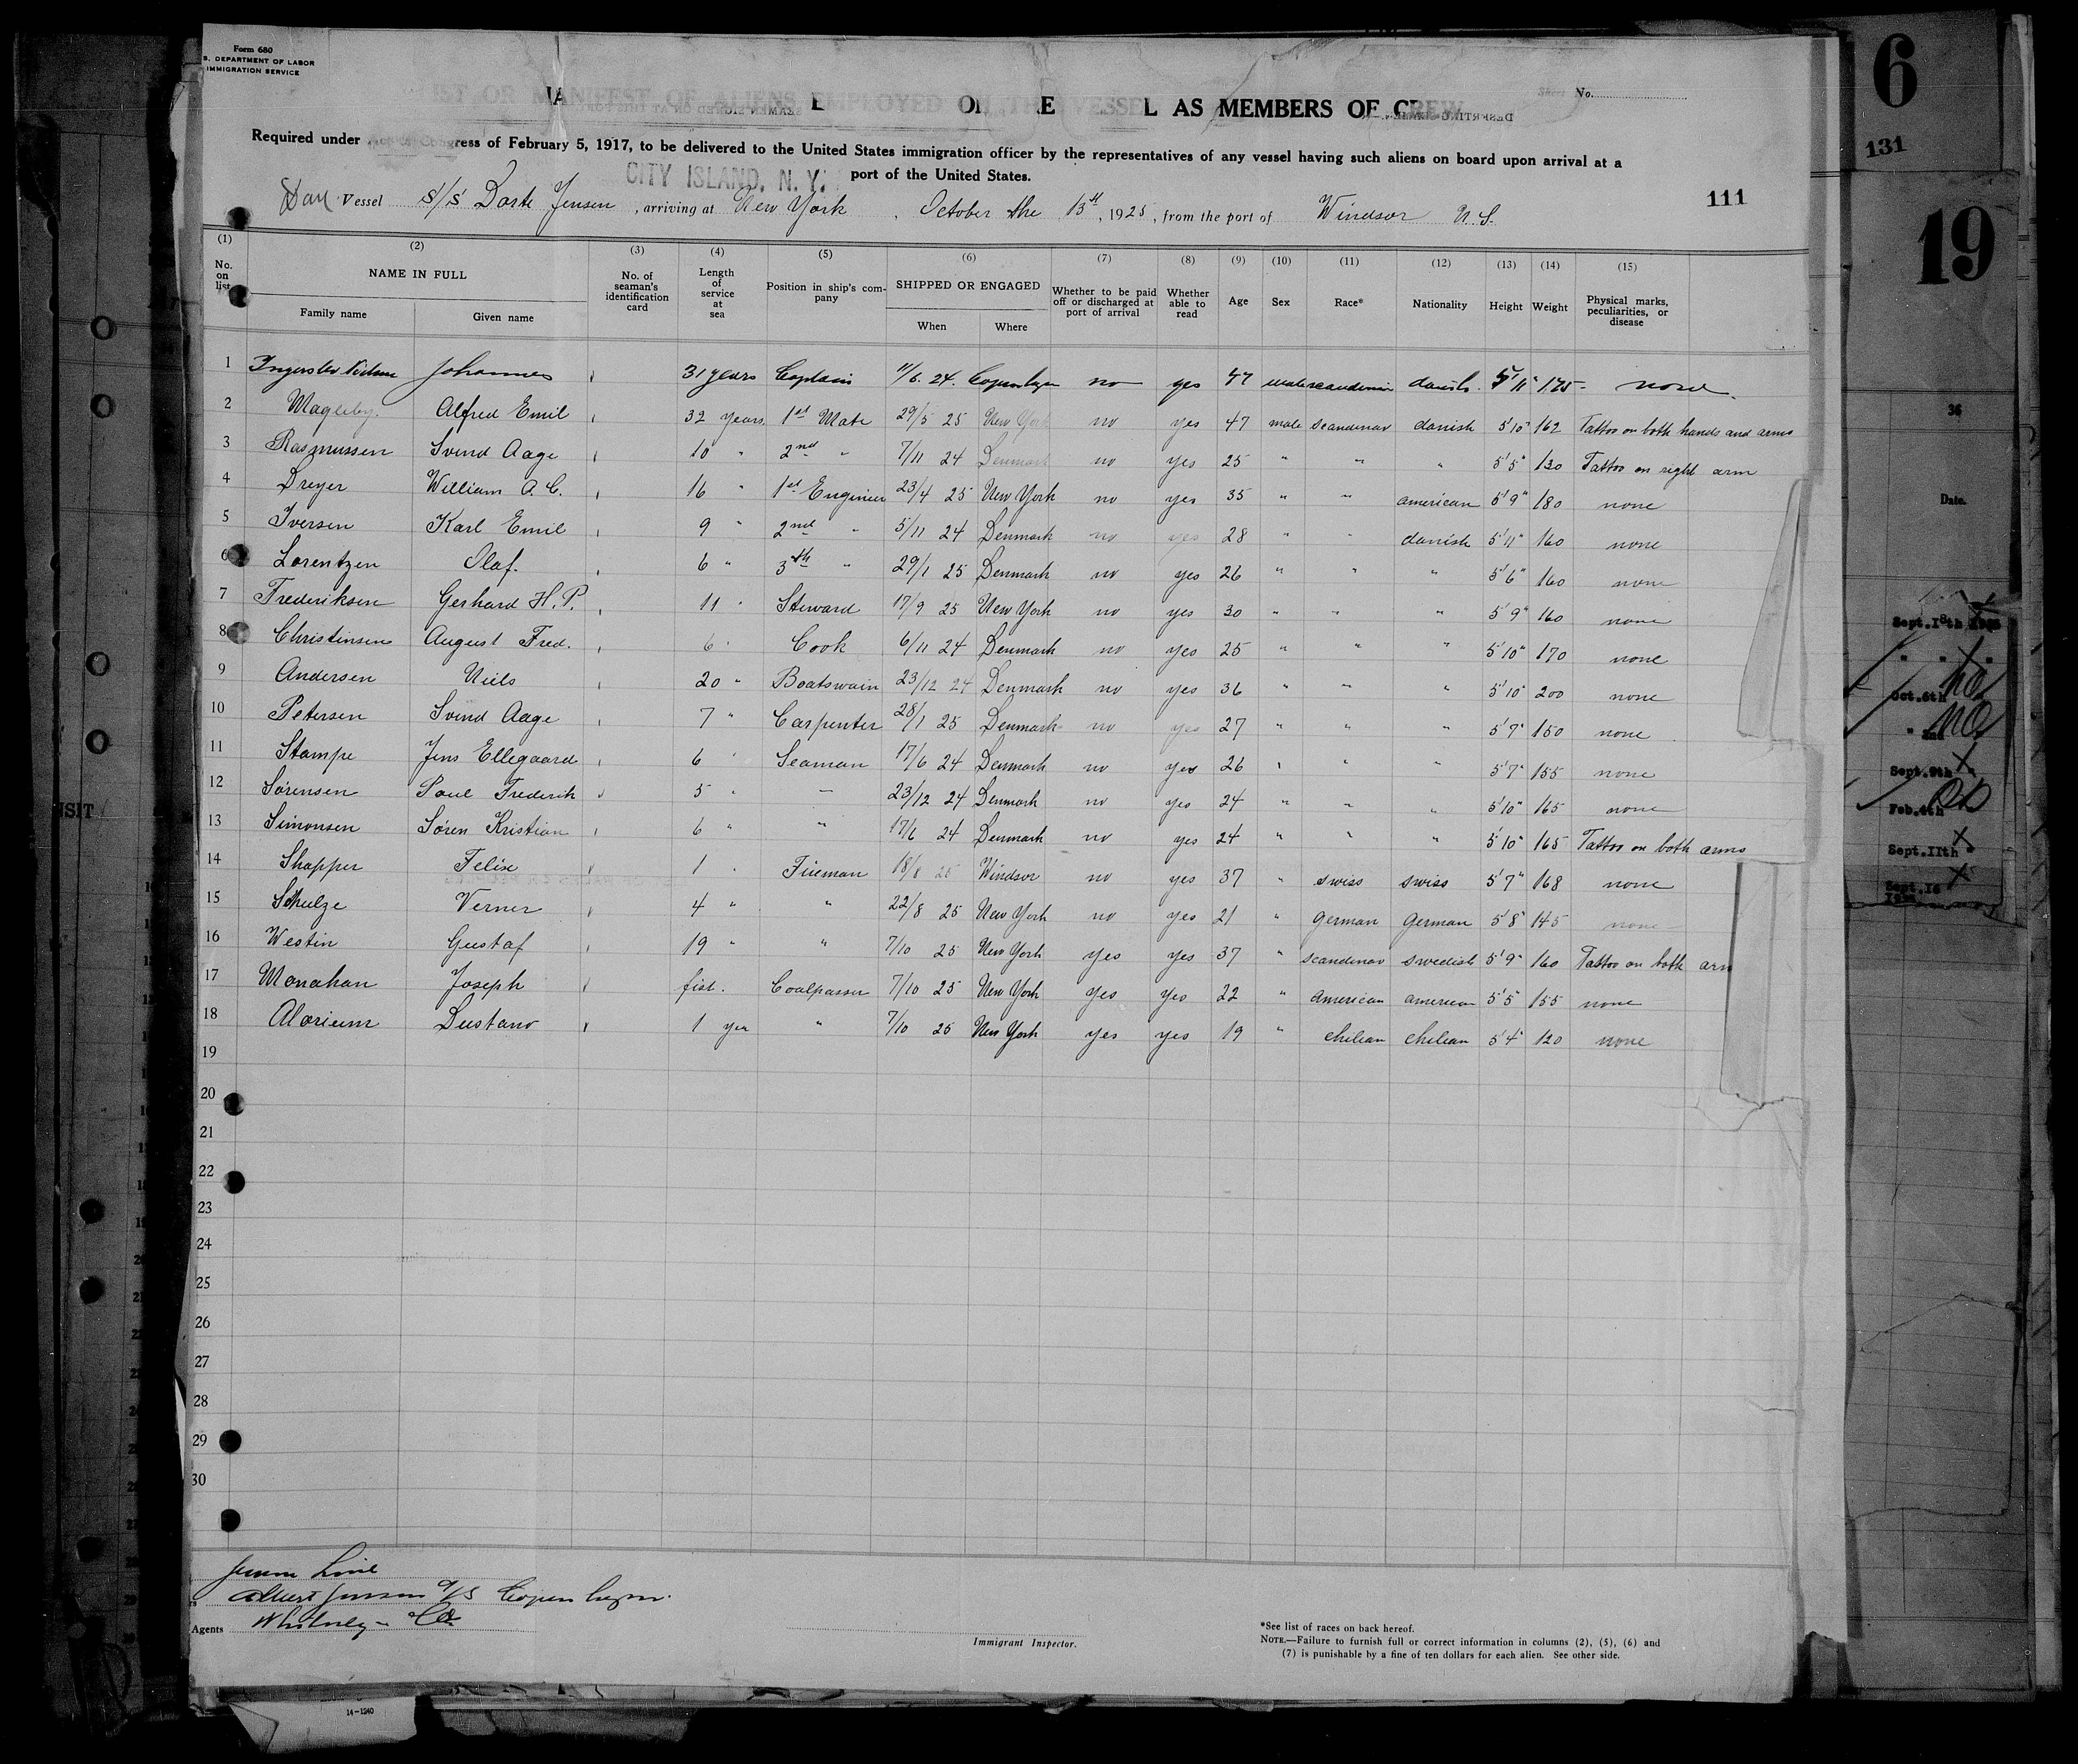 Form 680
S. DEPARTMENT OF LABOR
IMMIGRATION SERVICE
IST OR MANIFEST OF ALIENS EMPLOYED ON THE VESSEL AS MEMBERS OF CREW
Sheet No.
Required under Act of Congress of February 5, 1917, to be delivered to the United States immigration officer by the representatives of any vessel having such aliens on board upon arrival at a
port of the United States.
CITY ISLAND, N. Y.
Dan Vessel S/S Dorte Jensen, arriving at New York, October the 13th, 1925, from the port of Windsor N.S.
111
(1) (2) (3) (4) (5) (6) (7) (8) (9) (10) (11) (12) (13) (14) (15)
No. on list NAME IN FULL Family name Given name No. of seaman's identification card Length of service at sea Position in ship's company SHIPPED OR ENGAGED When Where Whether to be paid off or discharged at port of arrival Whether able to read Age Sex Race* Nationality Height Weight Physical marks, peculiarities, or disease
1 Johannes 31 years Captain 11/6. 24. Copenhagen no yes 47 male scandinav danish 5'11" 175 none
2 Magleby Alfred Emil 32 years 1st Mate 29/5 25 New York no yes 47 male Scandinav danish 5'10" 162 Tattoo on both hands and arms
3 Rasmussen Svend Aage 10 " 2nd " 7/11 24 Denmark no yes 25 " " " 5'5" 130 Tattoo on right arm
4 Dreyer William A. C. 16 " 1st Engineer 23/4 25 New York no yes 35 " " american 5'9" 180 none
5 Iversen Karl Emil 9 " 2nd " 5/11 24 Denmark no yes 28 " " danish 5'11" 160 none
6 Lorentzen Olaf. 6 " 3th " 29/1 25 Denmark no yes 26 " " " 5'6" 160 none
7 Frederiksen Gerhard H. P. 11 " Steward 17/9 25 New York no yes 30 " " " 5'9" 160 none
8 Christensen August Fred. 6 " Cook 6/11 24 Denmark no yes 25 " " " 5'10" 170 none
9 Andersen Niels 20 " Boatswain 23/12 24 Denmark no yes 36 " " " 5'10" 200 none
10 Petersen Svend Aage 7 " Carpenter 28/1 25 Denmark no yes 27 " " " 5'7" 150 none
11 Stampe Jens Ellegaard 6 " Seaman 17/6 24 Denmark no yes 26 " " " 5'7" 155 none
12 Sørensen Poul Frederik 5 " — 23/12 24 Denmark no yes 24 " " " 5'10" 165 none
13 Simonsen Søren Kristian 6 " " 17/6 24 Denmark no yes 24 " " " 5'10" 165 Tattoo on both arms
14 Shapper Felix 1 " Fireman 18/8 25 Windsor no yes 37 " swiss swiss 5'7" 168 none
15 Schulze Verner 4 " " 22/8 25 New York no yes 21 " German German 5'8" 145 none
16 Westin Gustaf 19 " " 7/10 25 New York yes yes 37 " Scandinav swedish 5'9" 160 Tattoo on both arm
17 Monahan Joseph fist. Coalpasser 7/10 25 New York yes yes 22 " american american 5'5" 155 none
18 Alarium Dustano 1 year " 7/10 25 New York yes yes 19 " Chilean Chilean 5'4" 120 none
19
20
21
22
23
24
25
26
27
28
29
30
Jensen Line
Albert Jensen A/S Copenhagen.
Agents Whitney & Co
Immigrant Inspector.
*See list of races on back hereof.
NOTE.—Failure to furnish full or correct information in columns (2), (5), (6) and
(7) is punishable by a fine of ten dollars for each alien. See other side.
14-1240
6
131
19
36
Date.
Sept.18th
no
Oct.6th
no
" 2nd
Sept.9th
Feb.4th
Sept.11th
Sept.16